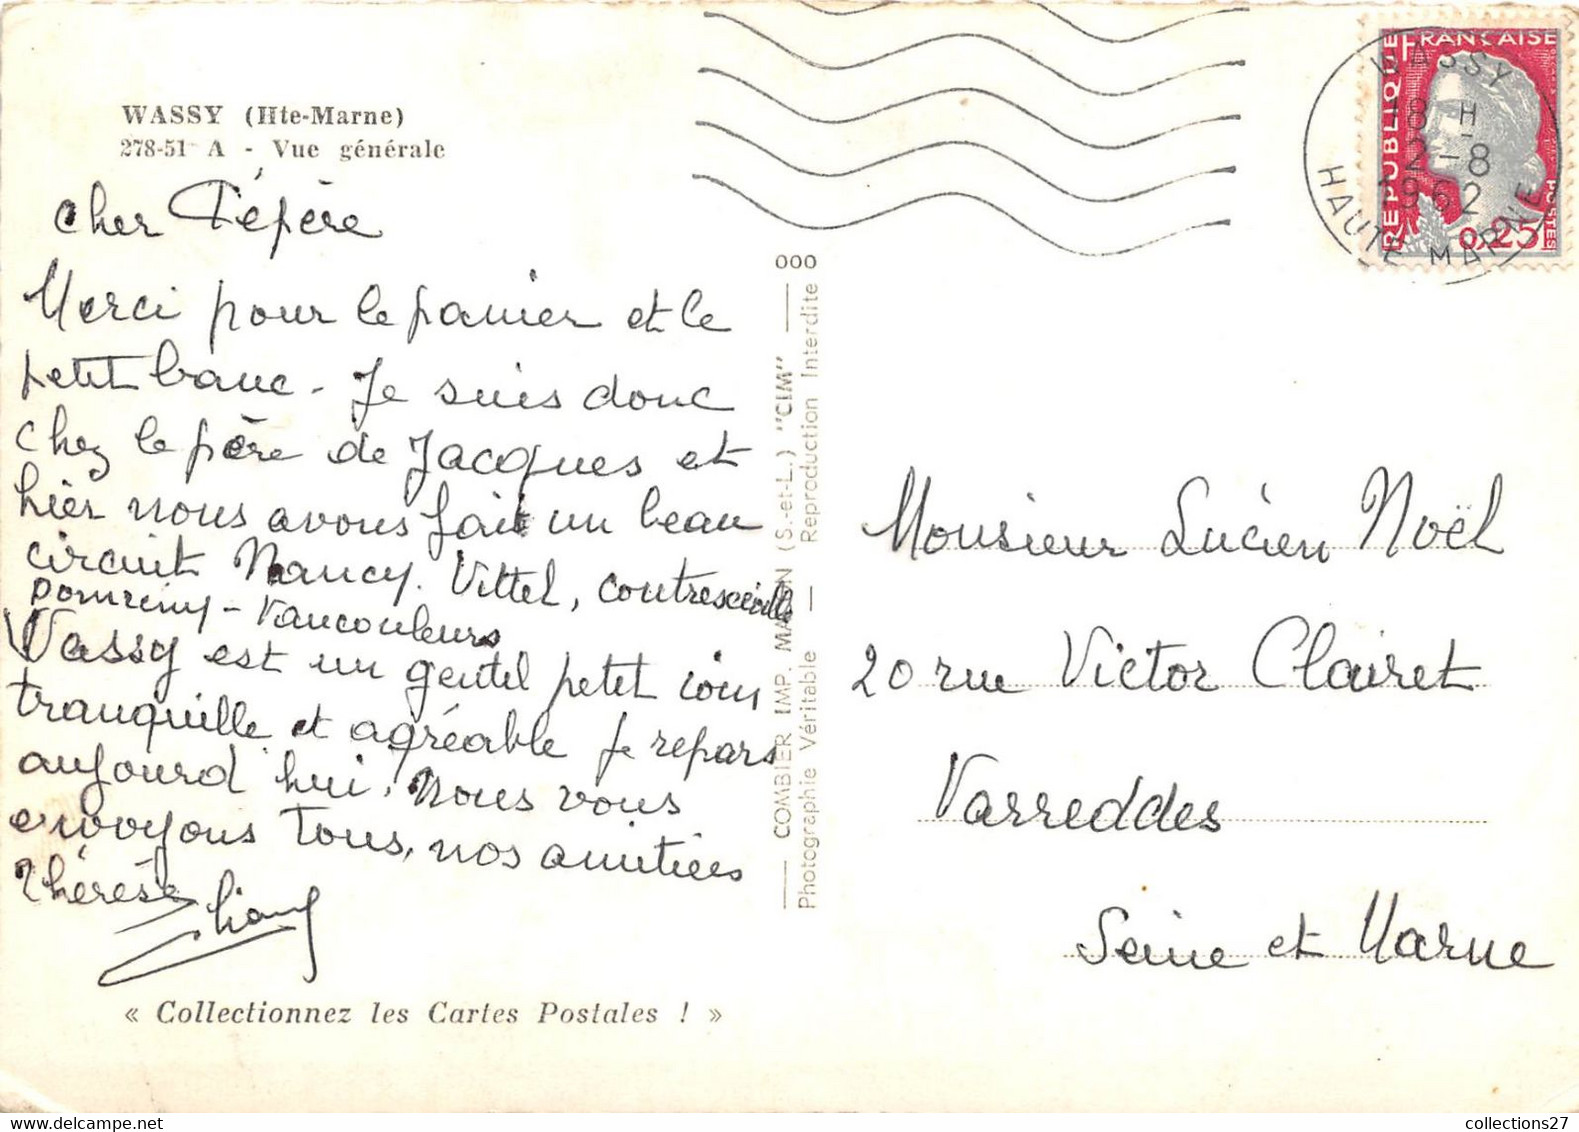 WASSY (Hte-Marne)
278-51 A - Vue générale
cher Pépère
Merci pour le panier et le
petit banc - Je suis donc
chez le père de Jacques et
hier nous avons fait un beau
circuit Nancy. Vittel, contrexeville
Domremy - Vaucouleurs
Wassy est un gentil petit coin
tranquille et agréable Je repars
aujourd'hui. Nous vous
envoyons tous, nos amitiées
Thérèse
« Collectionnez les Cartes Postales ! »
COMBIER IMP. MACON (S.-et-L.) "CIM"
Photographie Véritable — Reproduction Interdite
000
REPUBLIQUE FRANÇAISE
POSTES
0,25
WASSY
18 H
2-8
1962
HAUTE MARNE
Monsieur Lucien Noël
20 rue Victor Clairet
Varreddes
Seine et Marne
collections27